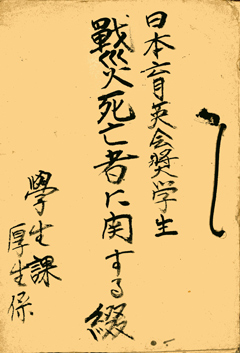 日本育英会奬学生
戰災死亡者に関する綴
學生課
厚生係